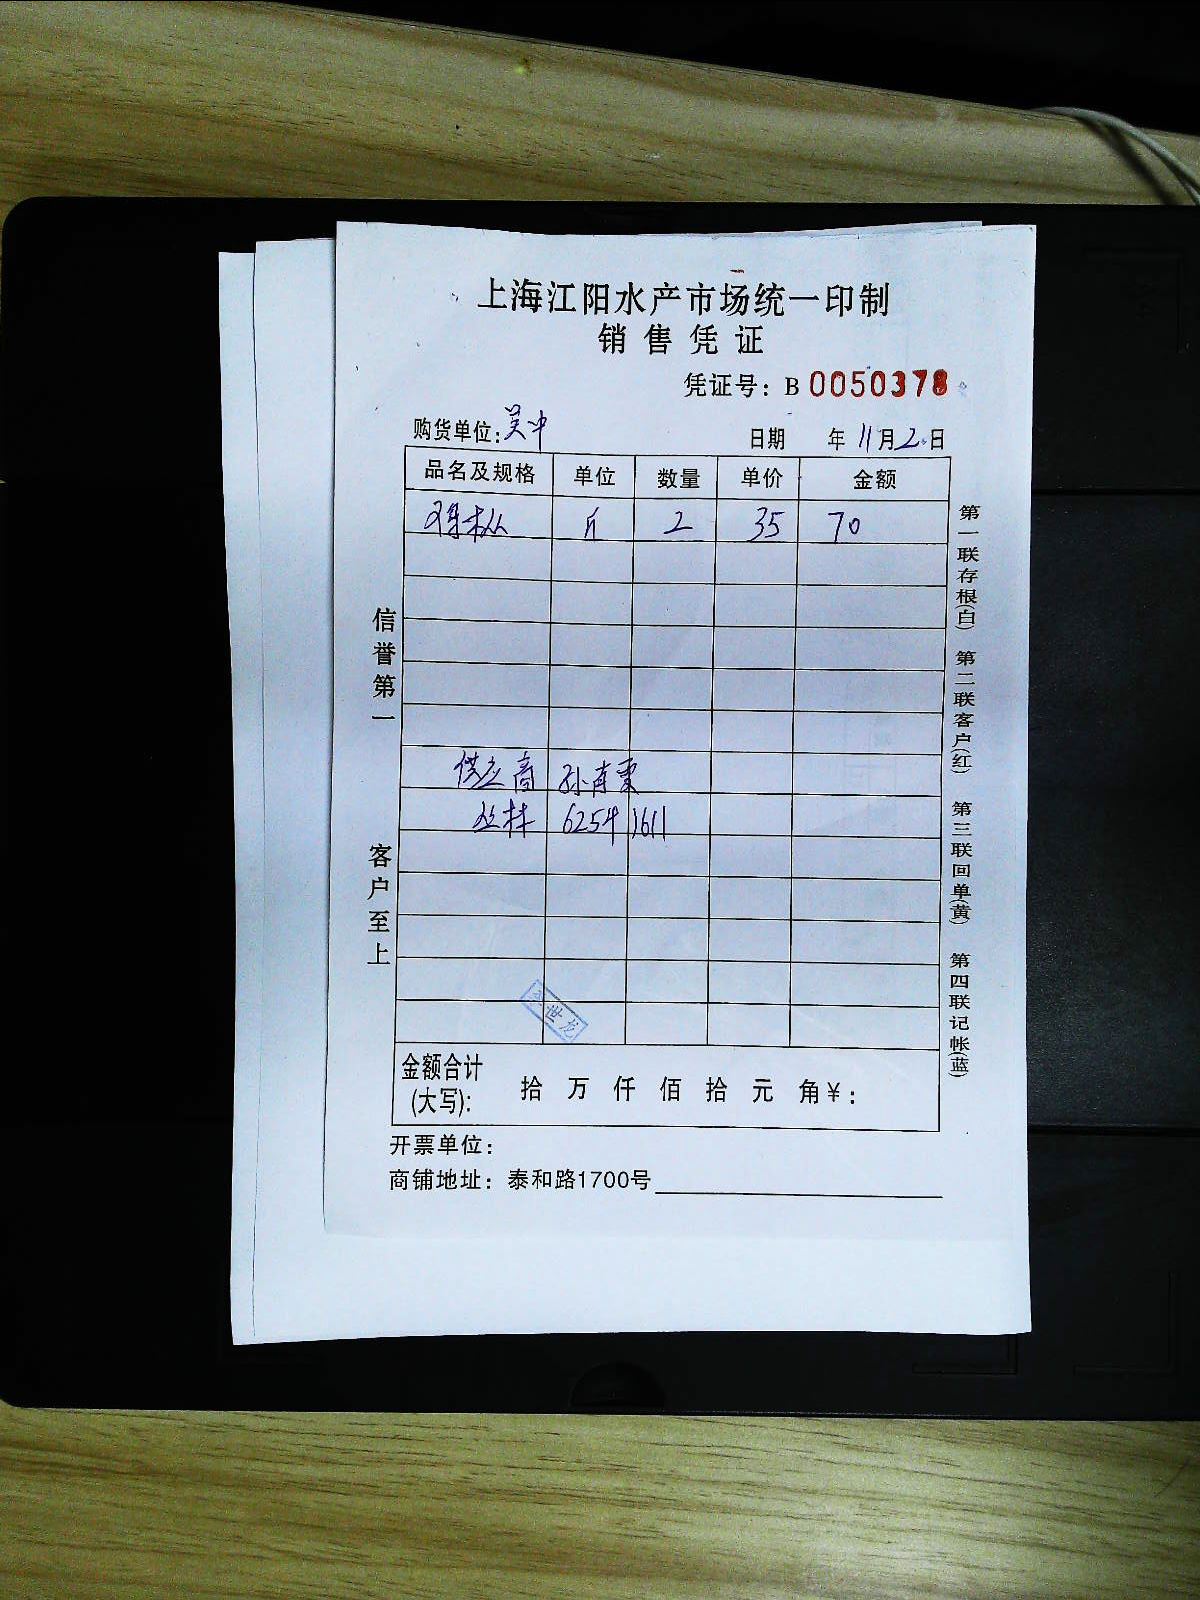 上海江阳水产市场统一印制
销售凭证
凭证号：B 0050378
购货单位：吴中
日期 年11月2日
品名及规格 单位 数量 单价 金额
斤 2 35 70
供应商
62541611
信誉第一
客户至上
第一联存根(白) 第二联客户(红) 第三联回单(黄) 第四联记帐(蓝)
世龙
金额合计(大写)： 拾 万 仟 佰 拾 元 角¥：
开票单位：
商铺地址：泰和路1700号